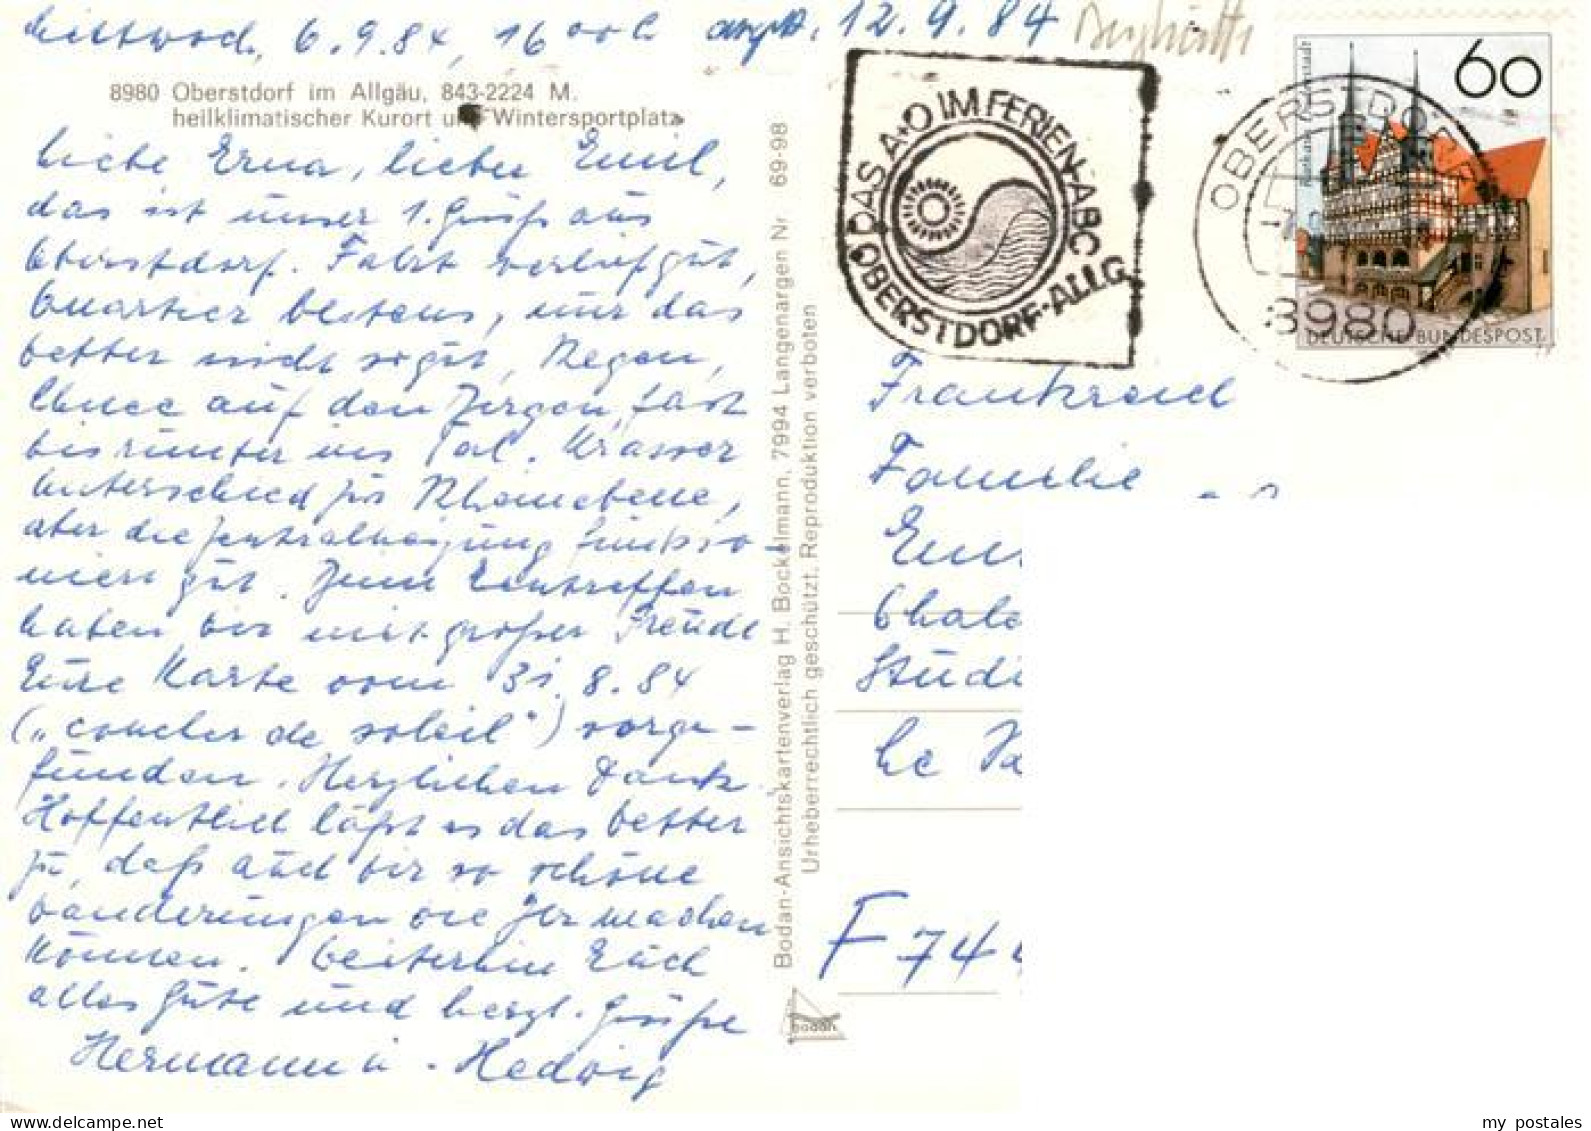 Mittwoch, 6.9.84, 16 00 h
12.9.84
8980 Oberstdorf im Allgäu, 843-2224 M.
heilklimatischer Kurort und Wintersportplatz
Liebe Erna, lieber Emil,
das ist unser 1. Gruß aus
Oberstdorf. Fahrt verlief gut,
Quartier bestens, nur das
Wetter nicht so gut, Regen,
Schnee auf den Bergen, fast
bis runter ins Tal. Krasser
Unterschied zur Rheinebene,
aber die Zentralheizung funktio-
niert gut. Beim Eintreffen
haben wir mit großer Freude
Eure Karte vom 31.8.84
("coucher de soleil") vorge-
funden. Herzlichen Dank.
Hoffentlich läßt es das Wetter
zu, daß auch wir so schöne
Wanderungen wie Ihr machen
können. Weiterhin Euch
alles Gute und herzl. Grüße
Hermann u. Hedwig
Bodan-Ansichtskartenverlag H. Bockelmann, 7994 Langenargen Nr 69-98
Urheberrechtlich geschützt. Reproduktion verboten
bodan
DAS A+O IM FERIEN-ABC
OBERSTDORF-ALLG.
OBERSTDORF
8980
60
DEUTSCHE BUNDESPOST
Frankreich
Familie
Studi
F 744
my postales